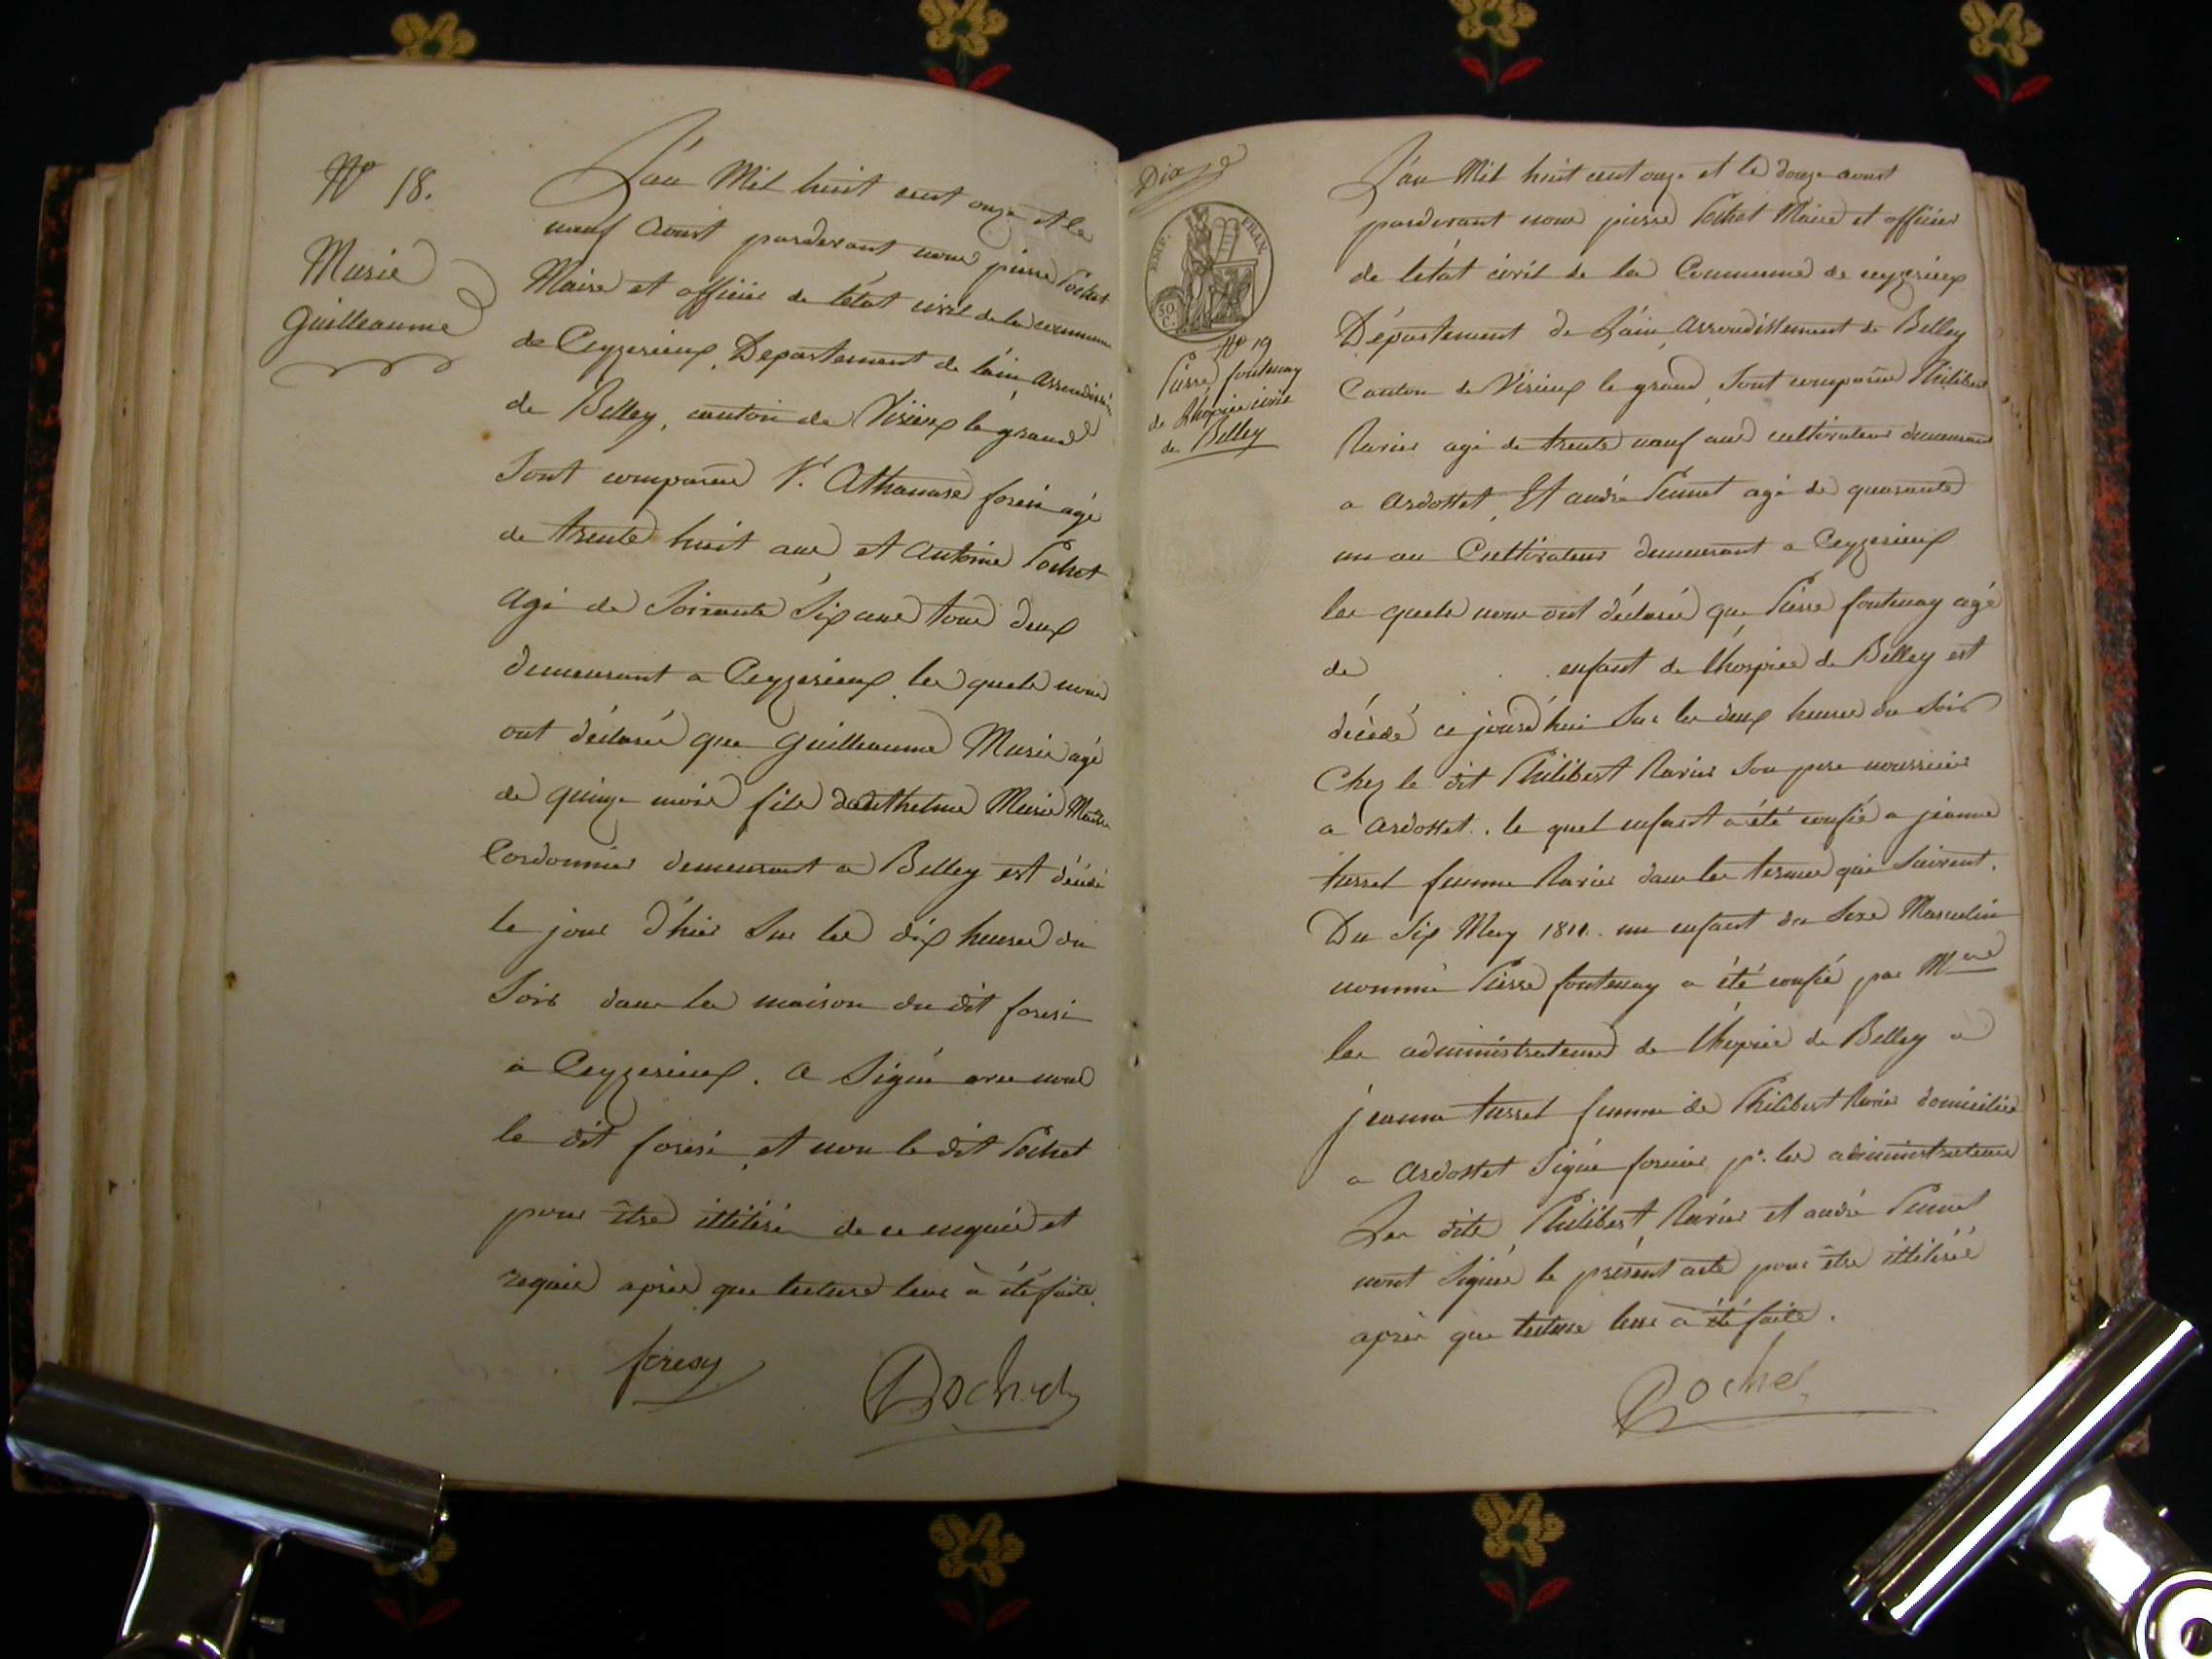 No 18.
Murié
Guilleaume
L'an Mil huit cent onze et le
neuf aoust pardevant nous pierre Pochet
Maire et officier de l'état civil de la commune
de Ceyzerieux, Departement de l'ain arrondissem
de Belley, canton de Virieux le grand
Sont comparus Sr. Athanase foresi agé
de trente huit ans et Antoine Pochet
agé de Soixante Six ans tous deux
demeurant a Ceyzerieux, les quels nous
ont déclaré que Guilleaume Murié agé
de quinze mois fils danthelme Murié Maitre
Cordonnier demeurant a Belley est décédé
le jour d'hier Sur les dix heures du
Soir dans la maison du dit foresi
a Ceyzerieux. a Signé avec nous
le dit foresi, et non le dit Pochet
pour être illitéré de ce enquis et
requis après que lecture leur à été faite.
foresy Pochet
Dix
EMP. FRAN.
50
C.
No 19
Pierre fontenay
de Lhopice civil
de Belley
L'an Mil huit cent onze et le douze aoust
pardevant nous pierre Pochet Maire et officier
de létat civil de la Commune de ceyzerieux
Département de Lain, arrondissement de Belley
Canton de Virieux le grand, Sont comparus Philibert
Ravier agé de trente neuf ans cultivateur demeurant
a ardosset, Et andré Pennet agé de quarante
un an Cultivateur demeurant a Ceyzerieux
les quels nous ont déclaré que Pierre fontenay agé
de enfant de l'hospice de Belley est
décédé ce jourd'hui Sur les deux heures du Soir
Chez le dit Philibert Ravier Son pere nourricier
a ardosset. le quel enfant a été confié a jeanne
tusset femme Ravier dans les termes qui Suivent.
Du Six May 1811. un enfant du Sexe Masculin
nommé Pierre fontenay a été confié par Mrs
les administrateurs de l'hopice de Belley a
jeanne tusset femme de Philibert Ravier domiciliée
a ardosset Signé fornier pr. les administrateurs
Les dits Philibert Ravier et andré Pennet
nont Signés le présent acte pour être illitérés
après que lecture leur à été faite.
Pochet